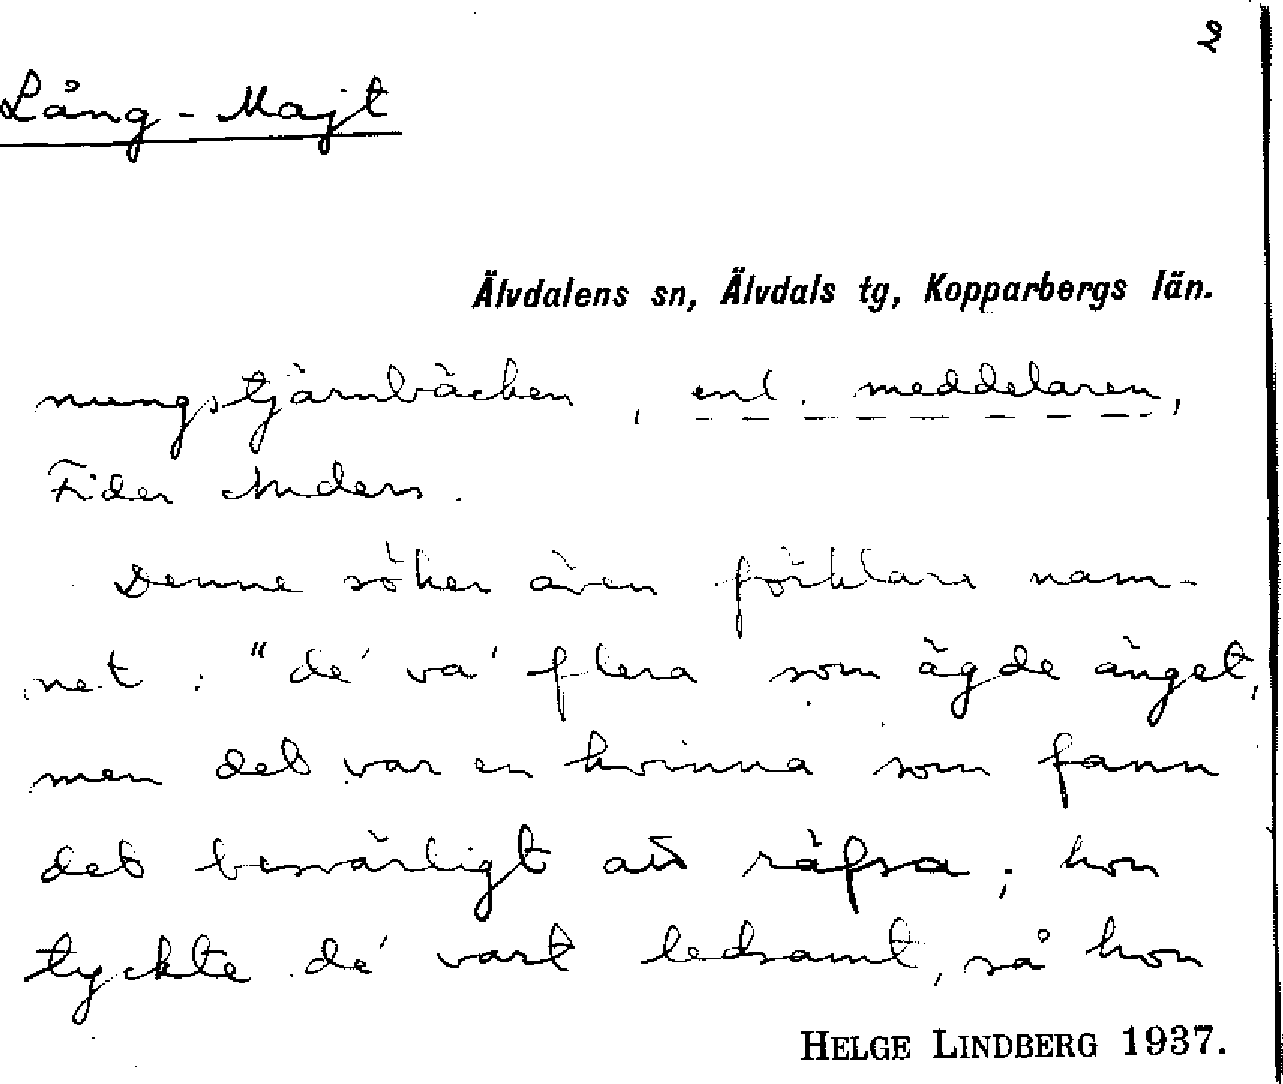 2
Lång-Majt
Älvdalens sn, Älvdals tg, Kopparbergs län.
nungstjärnbäcken, enl. meddelaren,
Fider Anders.
Denne söker även förklara nam-
net: "de' va' flera som ägde änget,
men det var en kvinna som fann
det besvärligt att räfsa; hon
tyckte de' vart ledsamt, så hon
HELGE LINDBERG 1937.